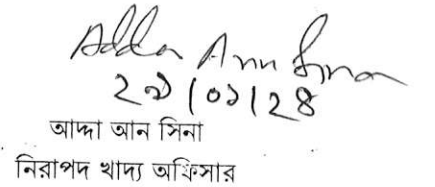 Adda Ann Sina
২৯/০১/২৪
আদ্দা আন সিনা
নিরাপদ খাদ্য অফিসার